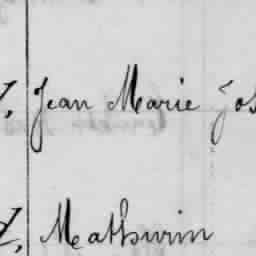 Jean Marie Jos
Mathurin